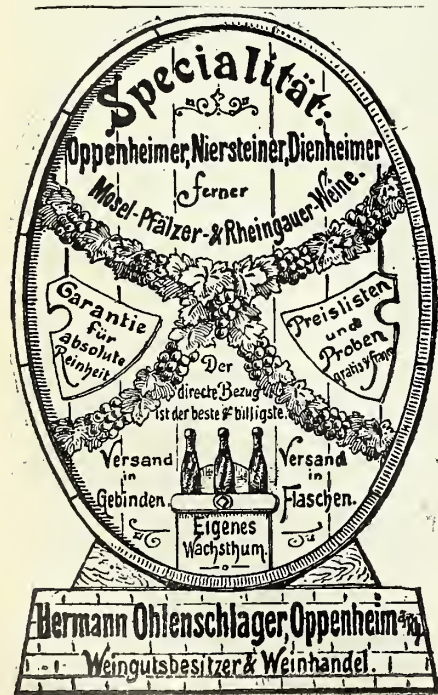 Specialität:
Oppenheimer, Niersteiner, Dienheimer
ferner
Mosel-Pfälzer-& Rheingauer-Weine.
Garantie
für
absolute
Reinheit
Preislisten
und
Proben
gratis & franco
Der
directe Bezug
ist der beste & billigste.
Versand
in
Gebinden.
Versand
in
Flaschen.
Eigenes
Wachsthum.
Hermann Ohlenschlager, Oppenheim a/Rh.
Weingutsbesitzer & Weinhandel.